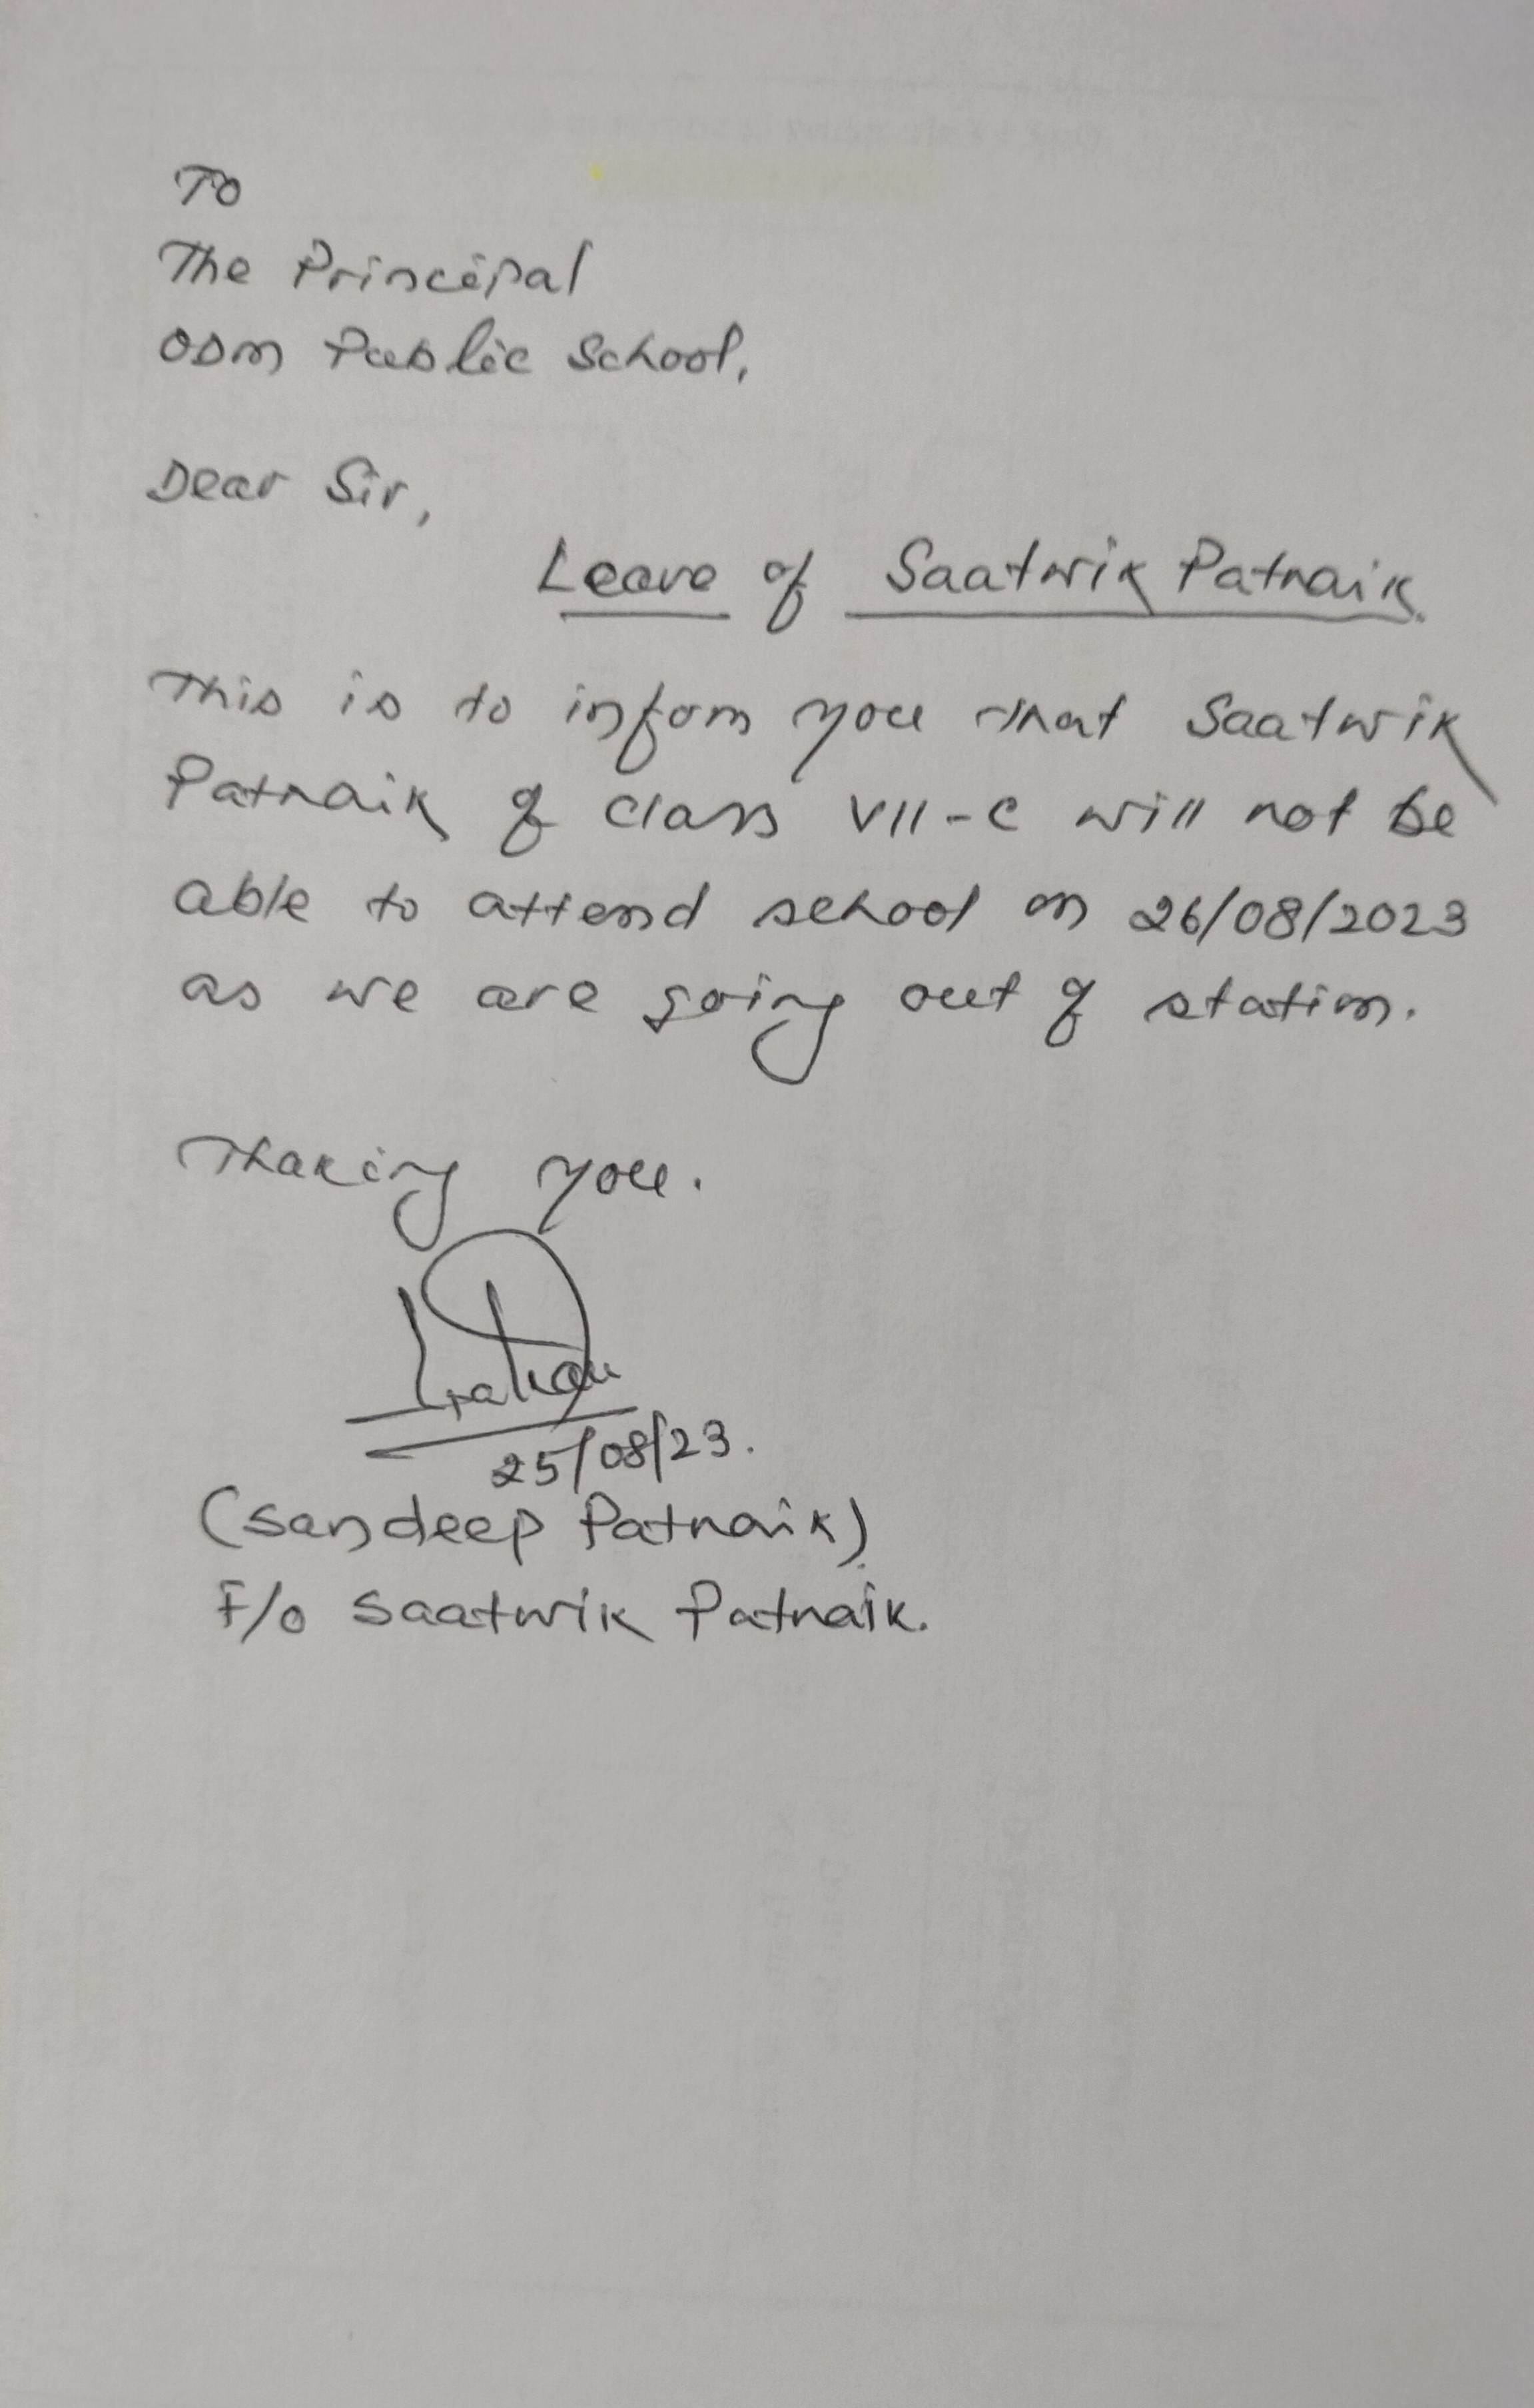 To
The Principal
ODM Public School,
Dear Sir,
Leave of Saatwik Patnaik.
This is to infom you that Saatwik
Patnaik of class VII-C will not be
able to attend school on 26/08/2023
as we are going out of station.
Thaking you.
25/08/23.
(Sandeep Patnaik)
F/o Saatwik Patnaik.